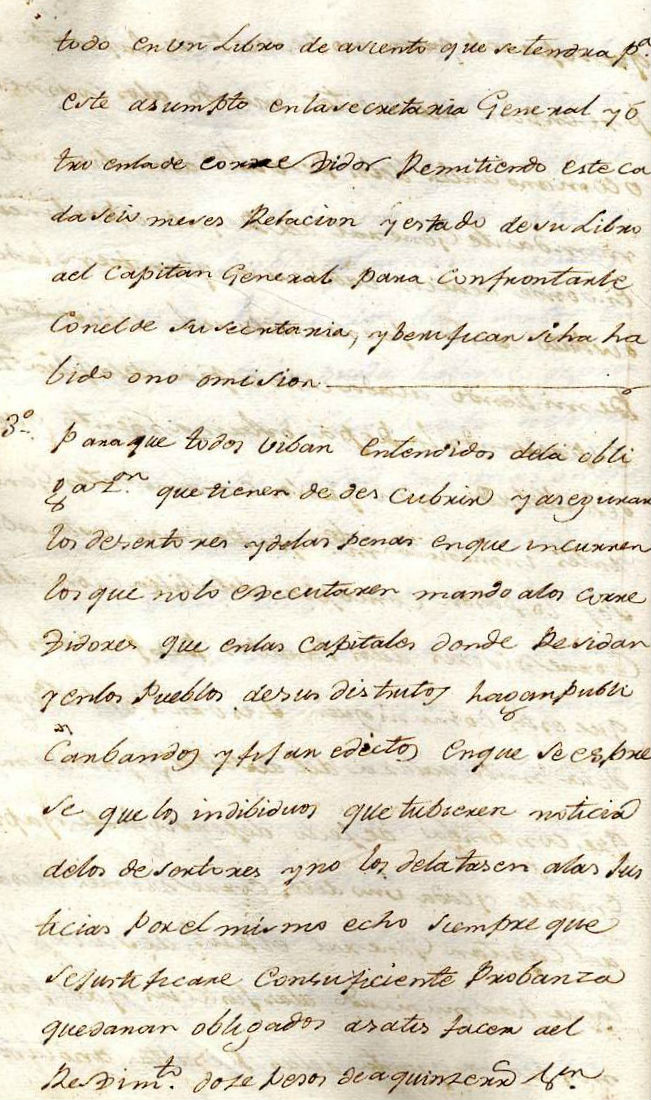 todo en un Libro de asiento que setendra p.ª
este asumpto enlasecretaria General y ó
tro enlade corre Didor Remitiendo este ca
da seis meses Relacion y estado de su Libro
ael Capitan General para Confrontarle
Conelde su secretaria, y berificar siha ha
bido ono omision
3.º Paraque todos viban entendidos dela obli
gaz.on que tienen de des Cubrir y asegurar
los desertores y delas penas enque incurren
los que nolo executaren mando alos Corre
Didores que enlas Capitales donde Residan
y enlos Pueblos desus distritos hagan publi
Car bandos y fijan edictos enque se espre
se que los indibiduos que tubieren noticia
delos desertores y no los delatasen alas Jus
ticias Porel mismo echo siempre que
sejustificare Consuficiente Probanza
quedaran obligados asatis facer ael
ReDim.to doze pesos de a quinze r.s